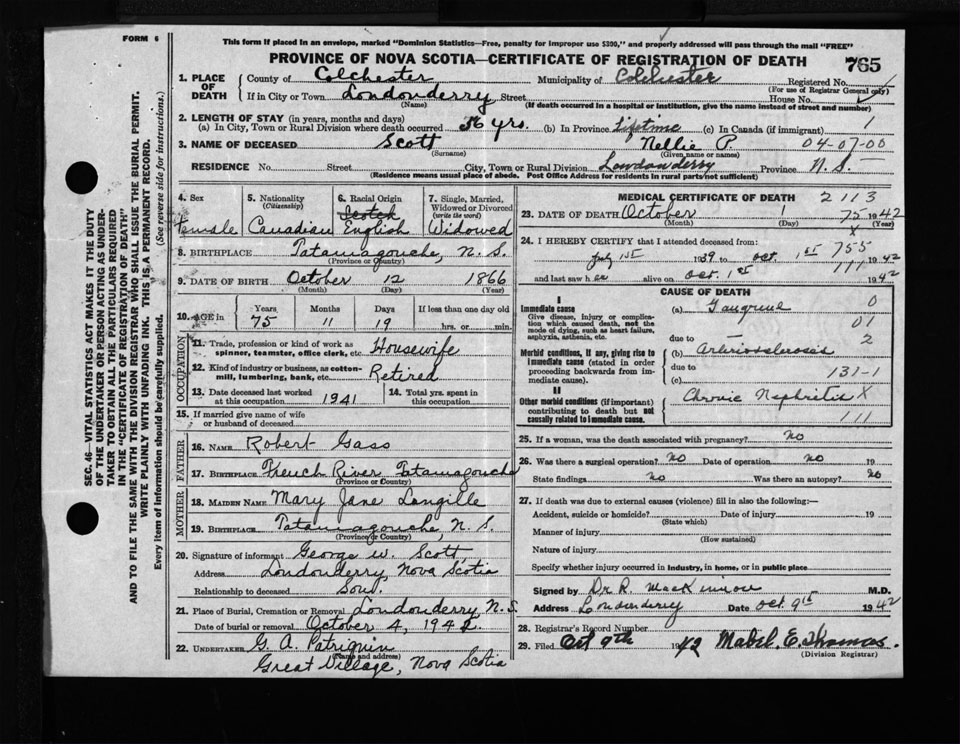 FORM 6
This form if placed in an envelope, marked "Dominion Statistics—Free, penalty for improper use $300," and properly addressed will pass through the mail "FREE"
PROVINCE OF NOVA SCOTIA—CERTIFICATE OF REGISTRATION OF DEATH
765
1. PLACE OF DEATH
County of Colchester Municipality of Colchester Registered No. 1
(For use of Registrar General only)
If in City or Town Londonderry Street House No.
(Name) (If death occurred in a hospital or institution, give the name instead of street and number)
2. LENGTH OF STAY (in years, months and days)
(a) In City, Town or Rural Division where death occurred 56 yrs. (b) In Province Lifetime (c) In Canada (if immigrant) 1
3. NAME OF DECEASED Scott Nellie P. 04-07-00
(Surname) (Given name or names)
RESIDENCE No. Street City, Town or Rural Division Londonderry Province N.S.
(Residence means usual place of abode. Post Office Address for residents in rural parts not sufficient)
4. Sex
Female
5. Nationality
(Citizenship)
Canadian
6. Racial Origin
Scotch
English
7. Single, Married, Widowed or Divorced
(write the word)
Widowed
8. BIRTHPLACE Tatamagouche, N.S.
(Province or Country)
9. DATE OF BIRTH October 12 1866
(Month) (Day) (Year)
10. AGE in Years Months Days If less than one day old
75 11 19 hrs. or min.
OCCUPATION
11. Trade, profession or kind of work as spinner, teamster, office clerk, etc. Housewife
12. Kind of industry or business, as cotton-mill, lumbering, bank, etc. Retired
13. Date deceased last worked at this occupation 1941
14. Total yrs. spent in this occupation
15. If married give name of wife or husband of deceased
FATHER
16. NAME Robert Gass
17. BIRTHPLACE French River Tatamagouche
(Province or Country)
MOTHER
18. MAIDEN NAME Mary Jane Langille
19. BIRTHPLACE Tatamagouche, N.S.
(Province or Country)
20. Signature of informant George W. Scott
Address Londonderry, Nova Scotia
Relationship to deceased Son.
21. Place of Burial, Cremation or Removal Londonderry, N.S.
Date of burial or removal October 4, 1942
22. UNDERTAKER G. A. Patriquin
(Name and address)
Great Village, Nova Scotia
MEDICAL CERTIFICATE OF DEATH 2113
23. DATE OF DEATH October 1 75 1942
(Month) (Day) (Year)
24. I HEREBY CERTIFY that I attended deceased from: X
July 1st 1939 to Oct. 1st 755 1942
111
and last saw her alive on Oct. 1st 1942
CAUSE OF DEATH
I
Immediate cause
Give disease, injury or complication which caused death, not the mode of dying, such as heart failure, asphyxia, asthenia, etc.
(a) Gangrene 0
01
due to 2
Morbid conditions, if any, giving rise to immediate cause (stated in order proceeding backwards from immediate cause).
(b) Arteriosclerosis
due to 131-1
(c)
II
Other morbid conditions (if important) contributing to death but not causally related to immediate cause.
Chronic Nephritis X
111
25. If a woman, was the death associated with pregnancy? No
26. Was there a surgical operation? No Date of operation No 19
State findings No Was there an autopsy? No
27. If death was due to external causes (violence) fill in also the following:—
Accident, suicide or homicide? Date of injury 19
(State which)
Manner of injury
(How sustained)
Nature of injury
Specify whether injury occurred in industry, in home, or in public place
Signed by Dr R. MacKinnon M.D.
Address Londonderry Date Oct. 9th 1942
28. Registrar's Record Number
29. Filed Oct 9th 1942 Mabel. E. Thomas.
(Division Registrar)
SEC. 46—VITAL STATISTICS ACT MAKES IT THE DUTY OF THE UNDERTAKER OR PERSON ACTING AS UNDERTAKER TO OBTAIN ALL THE PARTICULARS REQUIRED IN THE "CERTIFICATE OF REGISTRATION OF DEATH"
AND TO FILE THE SAME WITH THE DIVISION REGISTRAR WHO SHALL ISSUE THE BURIAL PERMIT.
WRITE PLAINLY WITH UNFADING INK. THIS IS A PERMANENT RECORD.
Every item of information should be carefully supplied. (See reverse side for instructions.)